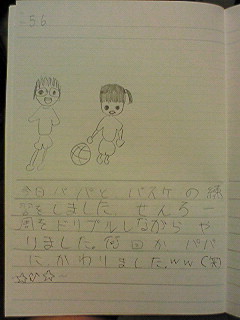 56
今日パパと、バスケの練
習をしました。せんろ一
周をドリブルしながら や
りました。何回か パパ
に、かわりました。ww(笑)
☆♡☆ー